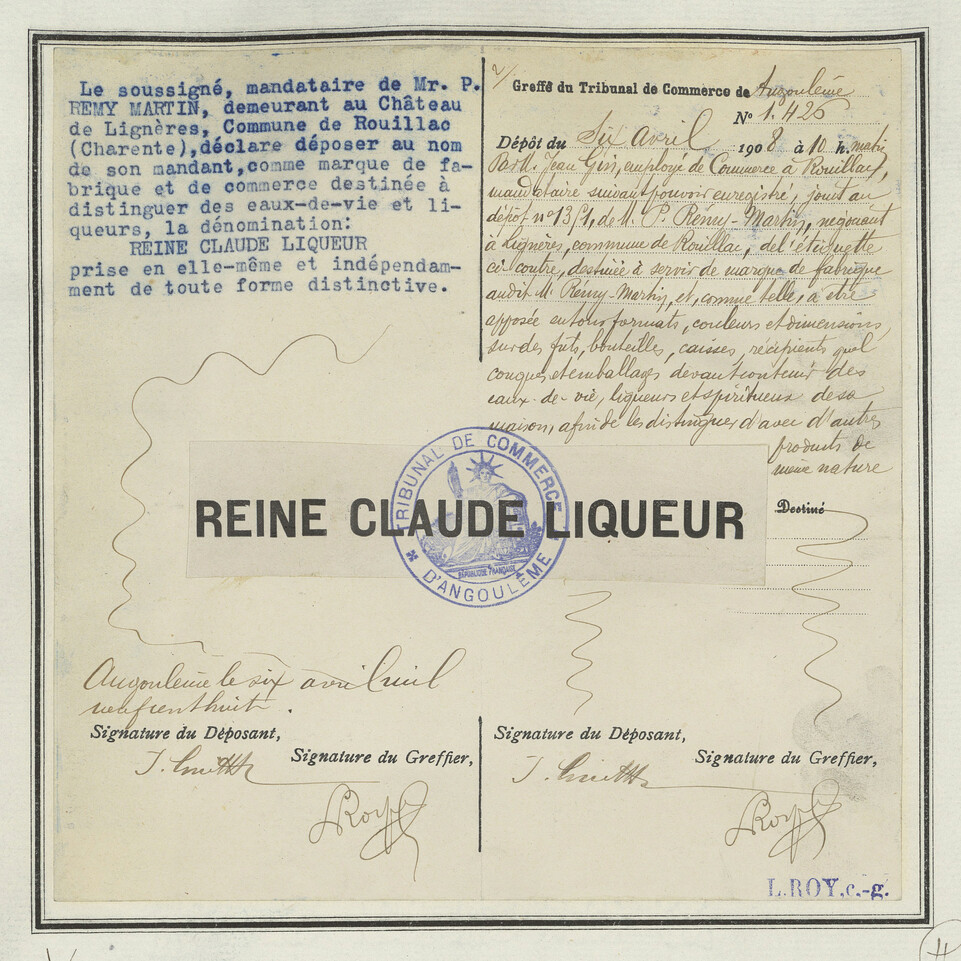 Le soussigné, mandataire de Mr. P.
REMY MARTIN, demeurant au Château
de Lignères, Commune de Rouillac
(Charente),déclare déposer au nom
de son mandant,comme marque de fa-
brique et de commerce destinée à
distinguer des eaux-de-vie et li-
queurs, la dénomination:
REINE CLAUDE LIQUEUR
prise en elle-même et indépendam-
ment de toute forme distinctive.
Greffe du Tribunal de Commerce de Angoulême
N° 1.426
Dépôt du Six Avril 1908 à 10 h. matin
Par M. Jean employé de Commerce à Rouillac,
mandataire suivant pouvoir enregistré, joint au
dépôt n° 1351, de M. P. Rémy-Martin, négociant
à Lignères, commune de Rouillac, de l'étiquette
ci-contre, destinée à servir de marque de fabrique
audit M. Rémy-Martin, et, comme telle, à être
apposée en tous formats, couleurs et dimensions,
sur des fûts, bouteilles, caisses, récipients quel
conques et emballages devant contenir des
eaux-de-vie, liqueurs et spiritueux de sa
maison, afin de les distinguer d'avec d'autres
produits de
même nature
TRIBUNAL DE COMMERCE
D'ANGOULÊME
RÉPUBLIQUE FRANÇAISE
REINE CLAUDE LIQUEUR
Destiné
Angoulême le six avril mil
neuf cent huit.
Signature du Déposant,
Signature du Greffier,
Signature du Déposant,
Signature du Greffier,
L. ROY, c.-g.